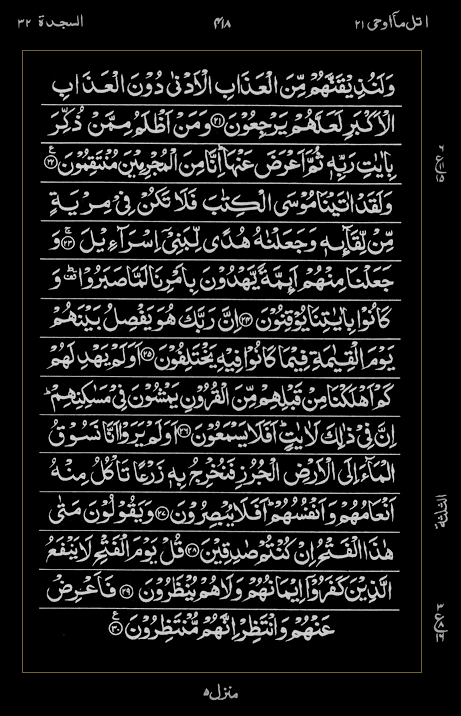 اتل مآ اوحی ۲۱ ۴۱۸ السجدة ۳۲
وَلَنُذِیْقَنَّهُمْ مِّنَ الْعَذَابِ الْاَدْنٰی دُوْنَ الْعَذَابِ
الْاَكْبَرِ لَعَلَّهُمْ یَرْجِعُوْنَ ﴿۲۱﴾ وَمَنْ اَظْلَمُ مِمَّنْ ذُكِّرَ
بِاٰیٰتِ رَبِّهٖ ثُمَّ اَعْرَضَ عَنْهَا ؕ اِنَّا مِنَ الْمُجْرِمِیْنَ مُنْتَقِمُوْنَ ﴿۲۲﴾ ع
وَلَقَدْ اٰتَیْنَا مُوْسَی الْكِتٰبَ فَلَا تَكُنْ فِیْ مِرْیَةٍ
مِّنْ لِّقَآئِهٖ وَجَعَلْنٰهُ هُدًی لِّبَنِیْۤ اِسْرَآءِیْلَ ﴿۲۳﴾ وَ
جَعَلْنَا مِنْهُمْ اَئِمَّةً یَّهْدُوْنَ بِاَمْرِنَا لَمَّا صَبَرُوْا وَ
كَانُوْا بِاٰیٰتِنَا یُوْقِنُوْنَ ﴿۲۴﴾ اِنَّ رَبَّكَ هُوَ یَفْصِلُ بَیْنَهُمْ
یَوْمَ الْقِیٰمَةِ فِیْمَا كَانُوْا فِیْهِ یَخْتَلِفُوْنَ ﴿۲۵﴾ اَوَلَمْ یَهْدِ لَهُمْ
كَمْ اَهْلَكْنَا مِنْ قَبْلِهِمْ مِّنَ الْقُرُوْنِ یَمْشُوْنَ فِیْ مَسٰكِنِهِمْ ؕ
اِنَّ فِیْ ذٰلِكَ لَاٰیٰتٍ ؕ اَفَلَا یَسْمَعُوْنَ ﴿۲۶﴾ اَوَلَمْ یَرَوْا اَنَّا نَسُوْقُ
الْمَآءَ اِلَی الْاَرْضِ الْجُرُزِ فَنُخْرِجُ بِهٖ زَرْعًا تَاْكُلُ مِنْهُ
اَنْعَامُهُمْ وَاَنْفُسُهُمْ ؕ اَفَلَا یُبْصِرُوْنَ ﴿۲۷﴾ وَیَقُوْلُوْنَ مَتٰی
هٰذَا الْفَتْحُ اِنْ كُنْتُمْ صٰدِقِیْنَ ﴿۲۸﴾ قُلْ یَوْمَ الْفَتْحِ لَا یَنْفَعُ
الَّذِیْنَ كَفَرُوْۤا اِیْمَانُهُمْ وَلَا هُمْ یُنْظَرُوْنَ ﴿۲۹﴾ فَاَعْرِضْ
عَنْهُمْ وَانْتَظِرْ اِنَّهُمْ مُّنْتَظِرُوْنَ ﴿۳۰﴾ ع
الثلثة
منزل ۵